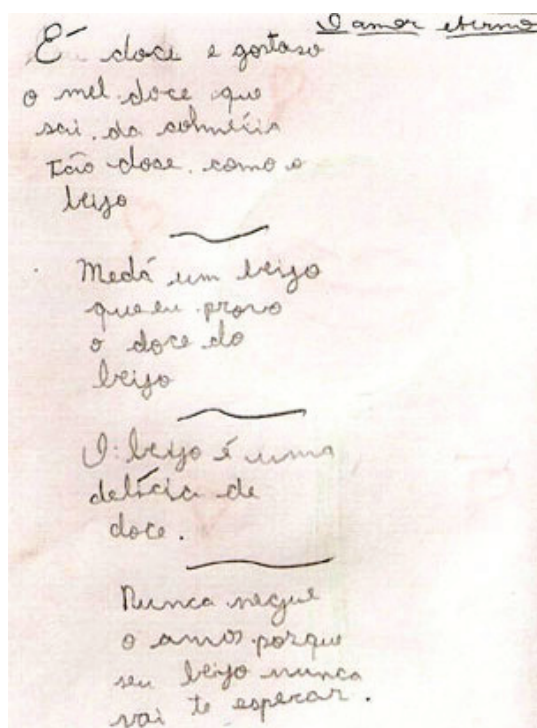 O amor eterno
É doce e gostoso
o mel doce que
sai da colmeia
tão dose como o
beijo
Medá um beijo
que eu provo
o doce do
beijo
O beijo é uma
delícia de
doce.
Nunca negue
o amor porque
seu beijo nunca
vai te esperar.